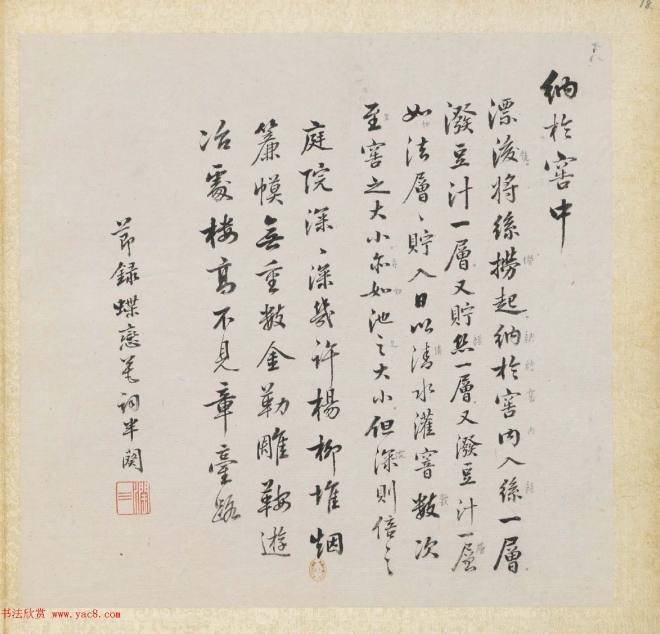 納於窖中
漂後將絲撈起納於窖內入絲一層
潑豆汁一層又貯絲一層又潑豆汁一層
如法層〻貯入日以清水灌窖數次
至窖之大小亦如池之大小但深則倍之
庭院深〻深幾許楊柳堆烟
簾幙無重數金勒雕鞍遊
冶處樓高不見章臺路
節錄蝶戀花詞半闋
书法欣赏 www.yac8.com